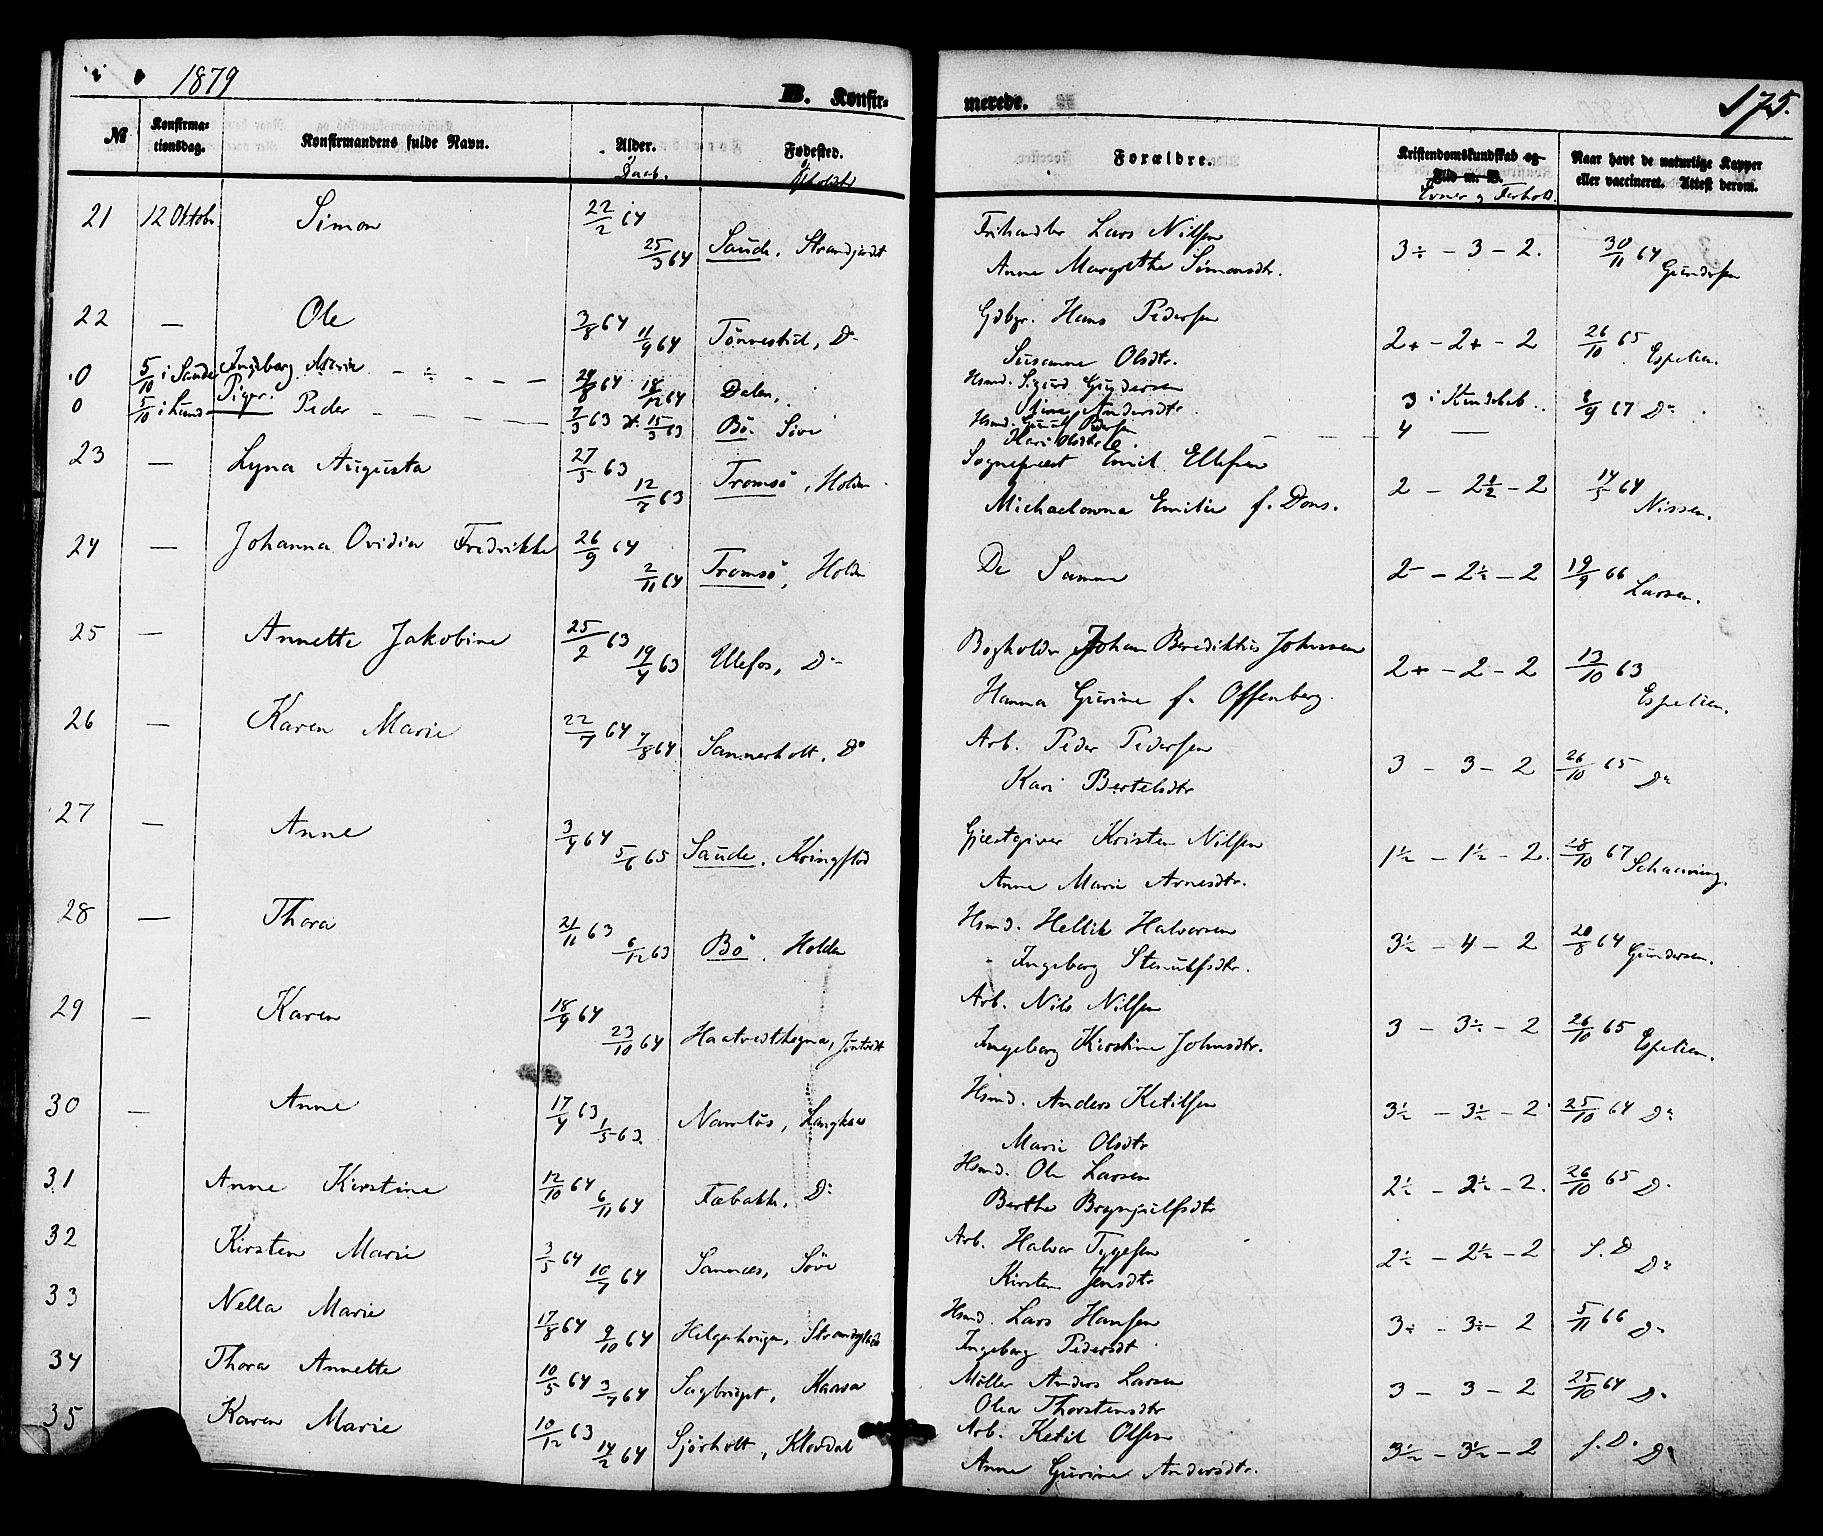 1879
B. Konfir-
merede.
175.
№
Konfirma-
tionsdag.
Konfirmandens fulde Navn.
Alder.
Daab.
Fødested.
Opholdst
Forældre.
Kristendomskundskab og
Flid m. V.
Evner og Forhold.
Naar havt de naturlige Kopper
eller vaccineret. Attest derom.
21 12 Oktobr Simon 22/2 64 25/3 64 Saude. Lars Nilsen 3÷ - 3 - 2. 30/11 64 Gundersen
Anne Margrethe Simonsdtr.
22 — Ole 3/8 64 11/9 64 Tønnestul, Do Gdbgr. Hans Pedersen 2+ - 2+ - 2 26/10 65 Espelien.
Susanne Olsdtr.
0 5/10 i Saude Ingeborg Marie 18/12 64 Dalen, Hsmd. Sigurd Gundersen 3 i Kundskab 8/9 67 Do
Andersdtr.
Piger.
0 5/10 i Lunde Peder 7/3 63 15/3 63 Bø. Søve Hsmd. Pedersen 4 —
Kari Olsdtr.
23 — Lyna Augusta 27/5 63 12/7 63 Tromsø, Holden Sognepræst Emil Ellefsen 2 - 2½ - 2 14/5 64 Nissen.
Michaelowna Emilie f. Dons.
24 — Johanna Ovidia Fredrikke 26/9 64 2/11 64 Tromsø, Holden De Samme 2- - 2½ - 2 19/9 66 Larsen.
25 — Annette Jakobine 25/2 63 19/4 63 Ulefos, Do Bogholder Johan Benediktus Johnsen 2+ - 2 - 2 13/10 63 Espelien.
Hanna Gurine f. Offenberg.
26 — Karen Marie 22/7 64 7/8 64 Sannerholt, Do Arb. Peder Pedersen 3 - 3 - 2 26/10 65 Do
Kari Bertelsdtr
27 — Anne 3/4 64 5/6 65 Saude. Kringstød Gjæstgiver Kristen Nilsen 1½ - 1½ - 2. 28/10 67 Schanning.
Anne Marie Arnesdtr.
28 — Thora 21/11 63 6/12 63 Bø. Holden Hsmd. Hellik Halvorsen 3½ - 4 - 2 20/8 64 Gundersen.
Ingeborg Stenulfsdtr.
29 — Karen 18/9 64 23/10 64 Haatvedthegna, Jøntvedt Arb. Nils Nilsen 3 - 3÷ - 2 26/10 65 Espelien.
Ingeborg Kirstine Johnsdtr.
30 — Anne 17/4 63 1/5 63. Namløs, Langkaas Hsmd. Anders Ketilsen 3½ - 3½ - 2 25/10 64 Do
Marie Olsdtr
31 Anne Kirstine 12/10 64 6/11 64 Fæbakk, Do Hsmd. Ole Larsen 2½ - 2½ - 2. 26/10 65 Do
Berthe Brynjulfsdtr
32 Kirsten Marie 3/5 64 10/7 64 Sannæs, Søve Arb. Halvor Tygesen 2½ - 2½ - 2 s. D Do
Kirsten Jensdtr
33 Nella Marie 17/8 64 9/10 64 Helgahougen, Hsmd. Lars Hansen 3÷ - 3÷ - 2 5/11 66 Do
Ingeborg Pedersdt
34 Thora Annette 10/5 64 3/7 64 Sagbruget, Kaasa Møller Anders Larsen 3 - 3 - 2 25/10 64 Do
Olea Thorstensdtr
35 Karen Marie 10/12 63 14/2 64 Sjørholt, Klovdal Arb. Ketil Olsen 3½ - 3½ - 2 s. D. Do
Anne Gurine Andersdtr.